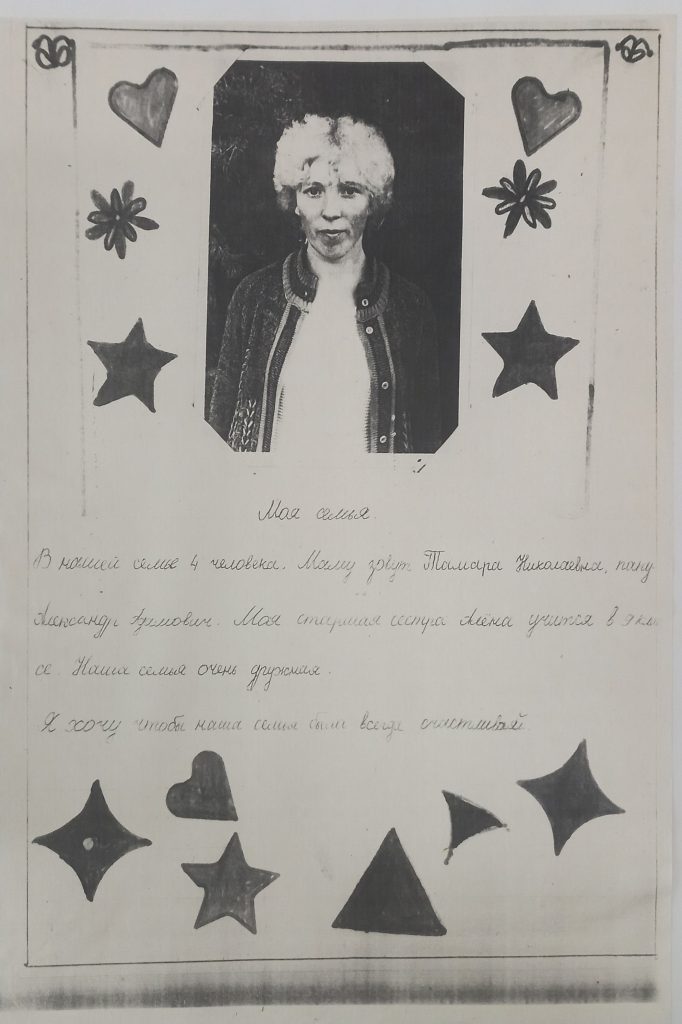 Моя семья.
В нашей семье 4 человека. Маму зовут Тамара Николаевна, папу
Александр Азимович. Моя старшая сестра Алёна учится в 9 клас
се. Наша семья очень дружная.
Я хочу чтобы наша семья была всегда счастливой.